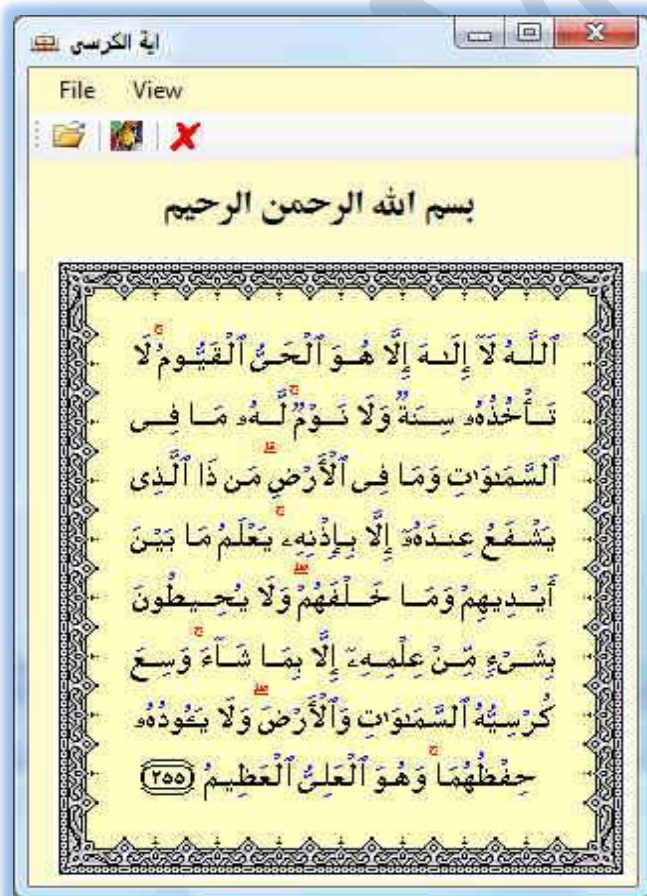 اية الكرسي
File View
بسم الله الرحمن الرحيم
ٱللَّهُ لَآ إِلَٰهَ إِلَّا هُوَ ٱلْحَىُّ ٱلْقَيُّومُ ۚ لَا
تَأْخُذُهُۥ سِنَةٌ وَلَا نَوْمٌ ۚ لَّهُۥ مَا فِى
ٱلسَّمَٰوَٰتِ وَمَا فِى ٱلْأَرْضِ ۗ مَن ذَا ٱلَّذِى
يَشْفَعُ عِندَهُۥٓ إِلَّا بِإِذْنِهِۦ ۚ يَعْلَمُ مَا بَيْنَ
أَيْدِيهِمْ وَمَا خَلْفَهُمْ ۖ وَلَا يُحِيطُونَ
بِشَىْءٍ مِّنْ عِلْمِهِۦٓ إِلَّا بِمَا شَآءَ ۚ وَسِعَ
كُرْسِيُّهُ ٱلسَّمَٰوَٰتِ وَٱلْأَرْضَ ۖ وَلَا يَـُٔودُهُۥ
حِفْظُهُمَا ۚ وَهُوَ ٱلْعَلِىُّ ٱلْعَظِيمُ ٢٥٥